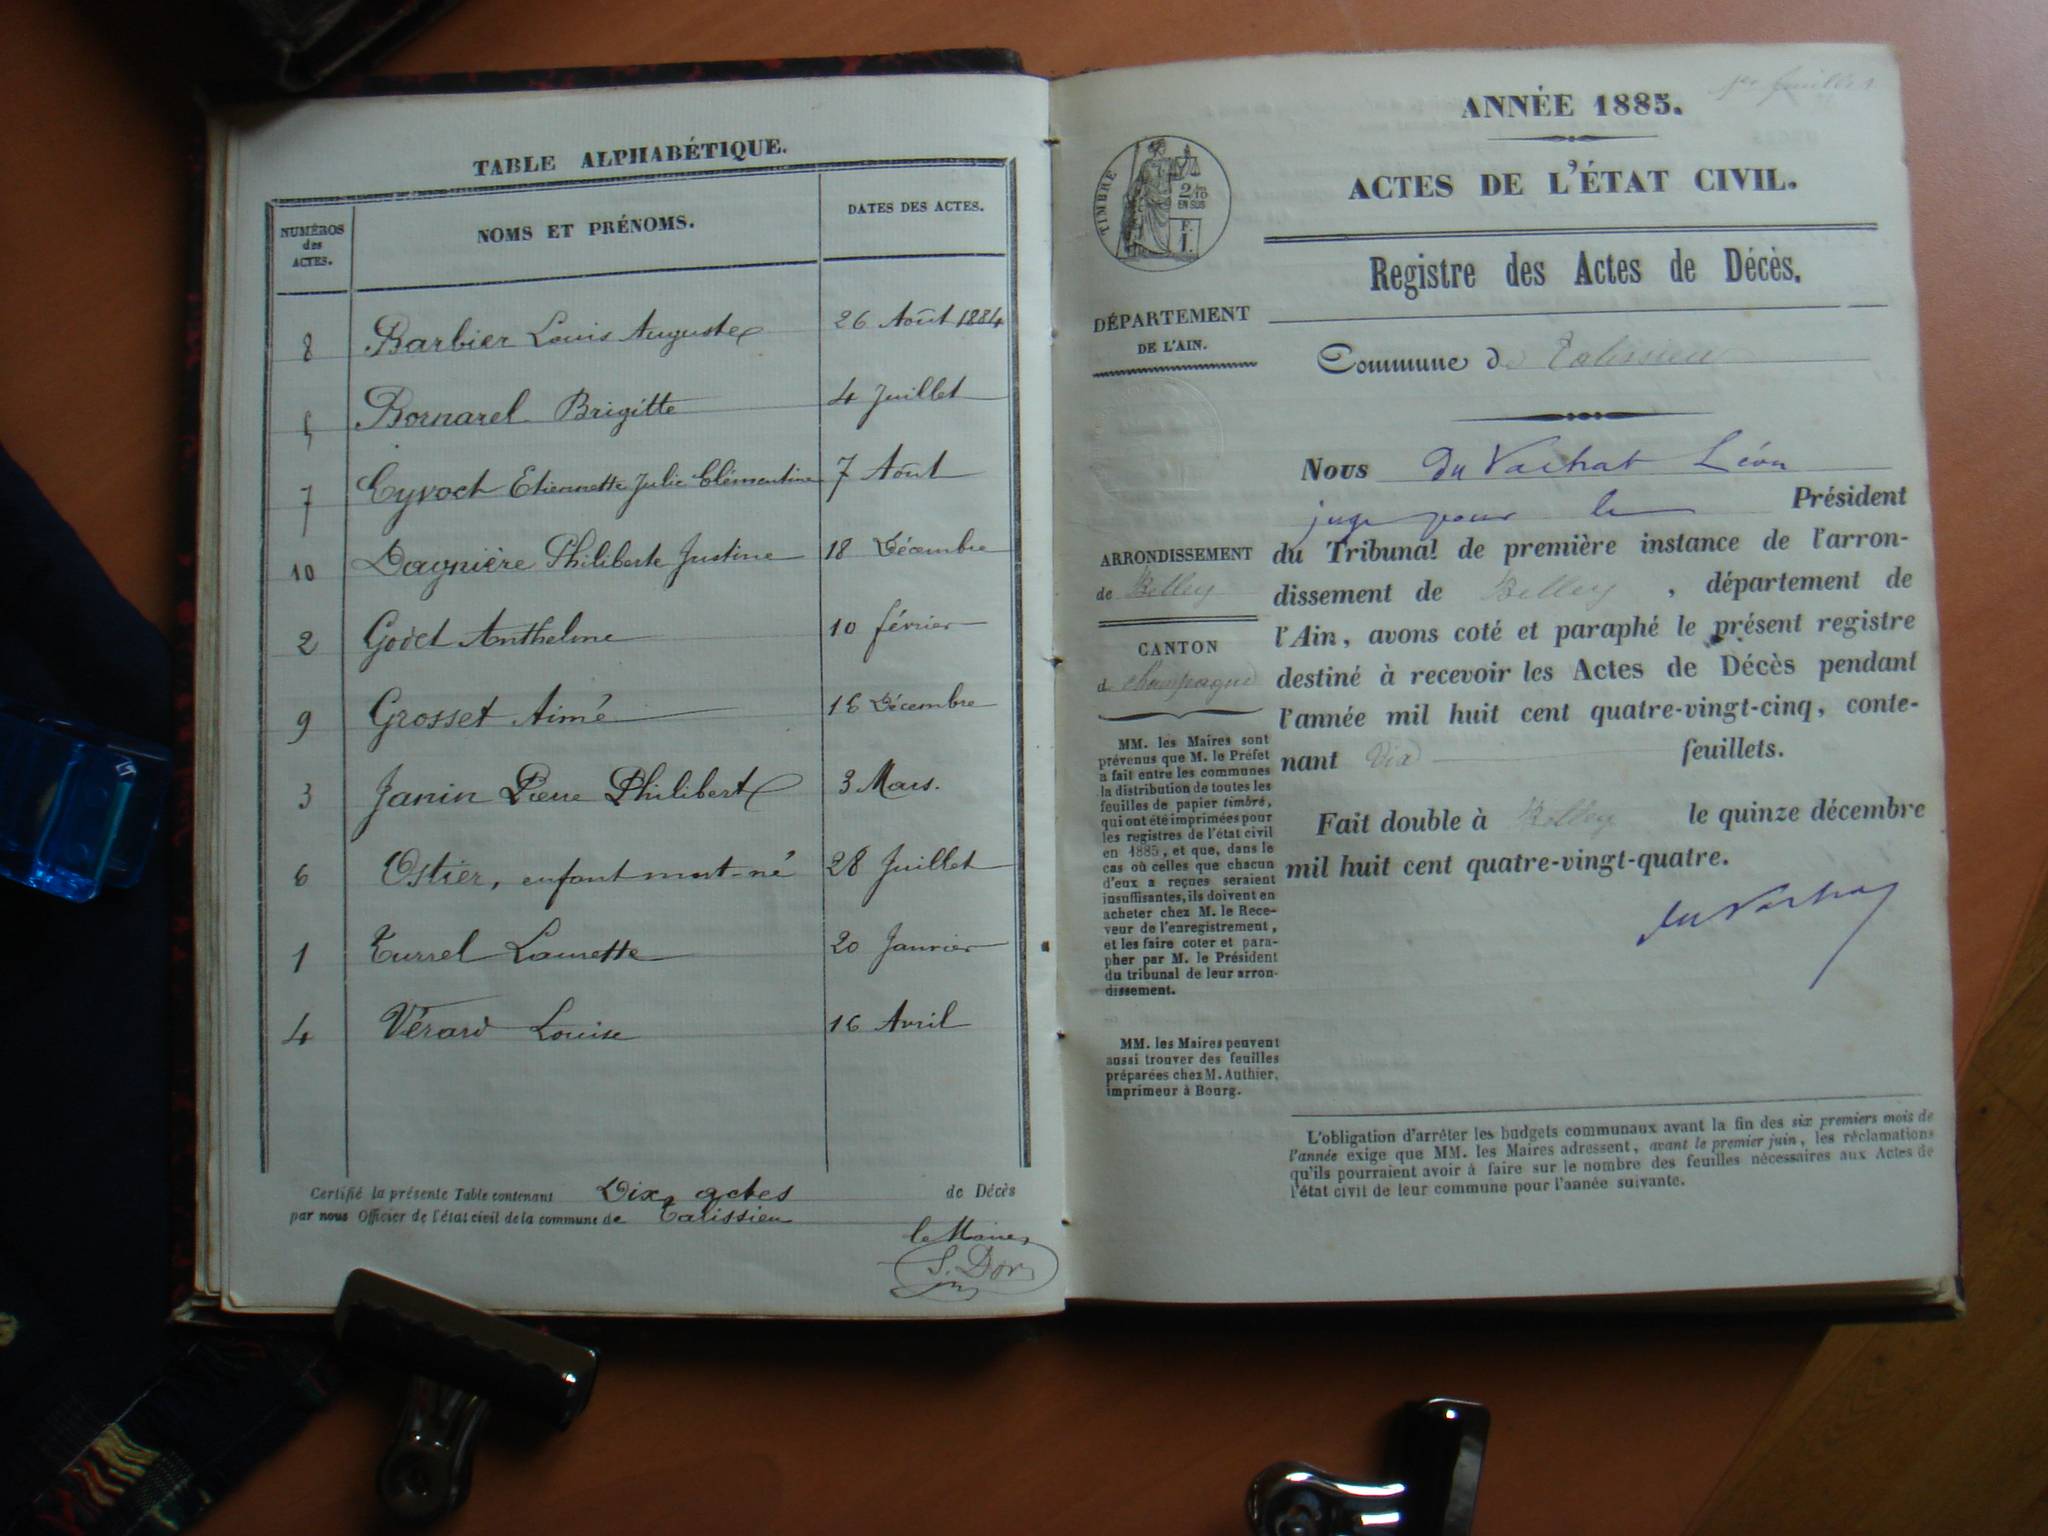 TABLE ALPHABÉTIQUE.
NUMÉROS des ACTES. NOMS ET PRÉNOMS. DATES DES ACTES.
8 Barbier Louis Auguste 26 Août 1884
5 Bornarel Brigitte 4 Juillet
7 Cyvoct Etiennette Julie Clémentine 7 Août
10 Dagnière Philiberte Justine 18 Décembre
2 Godet Anthelme 10 février
9 Grosset Aimé 16 Décembre
3 Janin Pierre Philibert 3 Mars.
6 Ostier, enfant mort-né 28 Juillet
1 Turrel Laurette 20 Janvier
4 Vérard Louise 16 Avril
Certifié la présente Table contenant Dix actes de Décès
par nous Officier de l'état civil de la commune de Talissieu
le Maire,
S. Dor
1er feuillet
ANNÉE 1885.
ACTES DE L'ÉTAT CIVIL.
TIMBRE
2/10
EN SUS
F.
1.
Registre des Actes de Décès.
DÉPARTEMENT
DE L'AIN.
Commune de Talissieu
Nous du Vachat Léon
juge pour le Président
du Tribunal de première instance de l'arron-
dissement de Belley, département de
l'Ain, avons coté et paraphé le présent registre
destiné à recevoir les Actes de Décès pendant
l'année mil huit cent quatre-vingt-cinq, conte-
nant dix feuillets.
Fait double à Belley le quinze décembre
mil huit cent quatre-vingt-quatre.
du Vachat
ARRONDISSEMENT
de Belley
CANTON
de Champagne
MM. les Maires sont
prévenus que M. le Préfet
a fait entre les communes
la distribution de toutes les
feuilles de papier timbré,
qui ont été imprimées pour
les registres de l'état civil
en 1885, et que, dans le
cas où celles que chacun
d'eux a reçues seraient
insuffisantes, ils doivent en
acheter chez M. le Rece-
veur de l'enregistrement,
et les faire coter et para-
pher par M. le Président
du tribunal de leur arron-
dissement.
MM. les Maires peuvent
aussi trouver des feuilles
préparées chez M. Authier,
imprimeur à Bourg.
L'obligation d'arrêter les budgets communaux avant la fin des six premiers mois de
l'année exige que MM. les Maires adressent, avant le premier juin, les réclamations
qu'ils pourraient avoir à faire sur le nombre des feuilles nécessaires aux Actes de
l'état civil de leur commune pour l'année suivante.